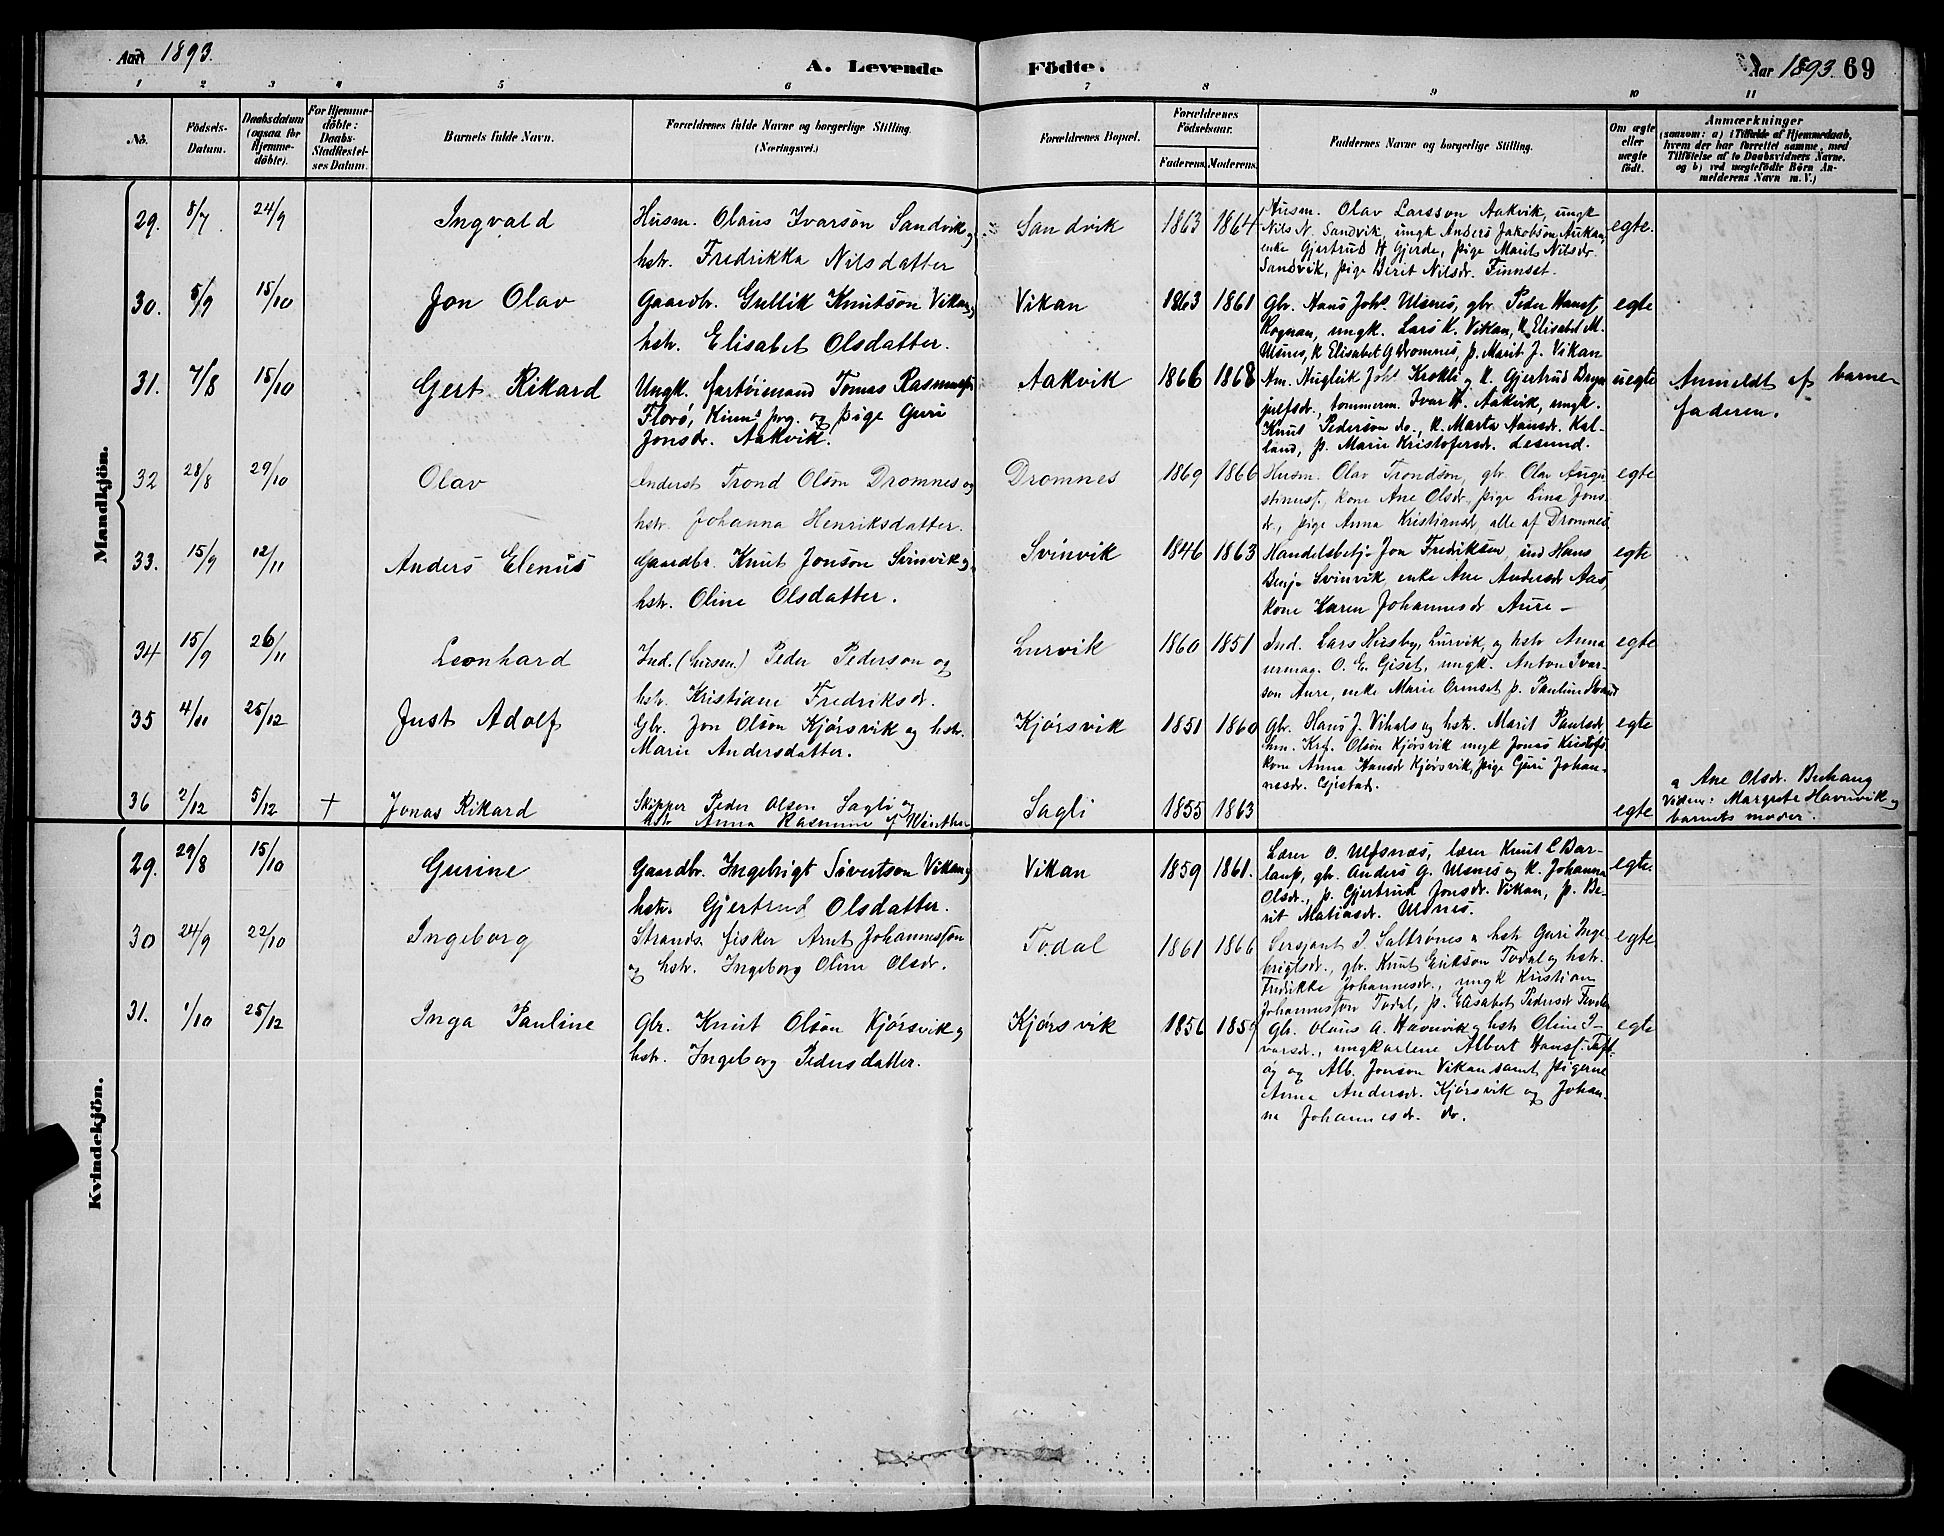 Aar 1893.
A. Levende Födte.
Aar 1893. 69
1 2 3 4 5 6 7 8 9 10 11
No.
Födsels-
Datum.
Daabsdatum
(ogsaa for
Hjemme-
döbte).
For Hjemme-
döbte:
Daabs-
Stadfæstel-
ses Datum.
Barnets fulde Navn.
Forældrenes fulde Navne og borgerlige Stilling.
(Næringsvei.)
Forældrenes Bopæl.
Forældrenes
Födselsaar.
Faderens. Moderens.
Faddernes Navne og borgerlige Stilling.
Om ægte
eller
uægte
födt.
Anmærkninger
(saasom: a) i Tilfælde af Hjemmedaab,
hvem der har forrettet samme, med
Tilföielse af to Daabsvidners Navne,
og b) ved uægtefödte Börn An-
melderens Navn m. V.)
Mandkjön.
29. 8/7 24/9 Ingvald
Husm. Olaus Ivarsön Sandvik og
hstr. Fredrikka Nilsdatter
Sandvik 1863 1864
Husm. Olav Larsson Aakvik, ungk
Nils N. Sandvik, ungk Anders Jakobsön Aukan,
enke Gjertrud H Gjerde, pige Marit Nilsdr.
Sandvik, pige Beret Nilsdr. Finnset.
egte.
30. 5/9 15/10 Jon Olav
Gaardbr. Gullik Knutsön Vikan og
hstr. Elisabet Olsdatter.
Vikan 1863 1861
Gbr. Hans Johs Ulsnes, gbr. Peder Hansf.
Rognan, ungk. Lars K. Vikan, k Elisabet M.
Ulsnes, k Elisabet G Dromnes, p. Marit J. Vikan
egte
31. 7/8 15/10 Gert Rikard
Ungk. fartöimand Tomas Rasmussön
Florö, Kinns prg. og pige Guri
Jonsdr. Aakvik.
Aakvik 1866 1868
Nm. Augleik Johs Krokli og k. Gjertrud Bryn
julfsdr., tömmerm. Ivar H. Aakvik, ungk.
Knut Pederson do., k. Marta Hansdr. Kal-
land, p. Marie Kristofersdr. Lesund.
uegte
Anmeldt af barne-
faderen.
32 28/8 29/10 Olav
Inderst Trond Olsön Dromnes og
hstr. Johanna Henriksdatter.
Dromnes 1869 1866
Husm. Olav Trondsön, gbr. Olav Augu
stinusf., kone Ane Olsdr., pige Lina Jons
dr., pige Anna Kristiansdr alle af Dromnes
egte
33. 15/9 12/11 Anders Elenius
Gaardbr. Knut Jonsön Svinvik og
hstr. Oline Olsdatter.
Svinvik 1846 1863
Handelsbetj. Jon Fredriksen, ind Hans
Benj. Svinvik, enke Ane Andersdr Aas,
kone Karen Johannesdr Aure –
egte
34 15/9 26/11 Leonhard
Ind. (husm.) Peder Pederson og
hstr. Kristiane Fredriksdr.
Lurvik 1860 1851
Ind. Lars Husby, Lurvik, og hstr Anna
urmag. O. E. Giset, ungk. Anton Ivar-
son Aure, enke Marie Ormset p. Pauline Strand
egte
35 4/11 25/12 Just Adolf
Gbr. Jon Olsön Kjörsvik og hstr.
Marie Andersdatter.
Kjörsvik 1851 1860
Gbr. Olaus J. Vihals og hstr. Marit Paulsdr.
hm. Krf. Olsön Kjörsvik ungk Jonas Kristofs.
kone Anna Hansdr Kjörsvik, pige Guri Johan-
nesdr. Gjestad.
egte
36 2/12 5/12 + Jonas Rikard
Skipper Peder Olsen Sagli og
hstr Anna Rasmine f Winther
Sagli 1855 1863
egte
a Ane Olsdr. Buhaug
Vidner: Margrete Havnvik og
barnets moder.
Kvindekjön.
29. 29/8 15/10 Gurine
Gaardbr. Ingebrigt Sivertson Vikan og
hstr. Gjertrud Olsdatter.
Vikan 1859 1861.
Lærer O. Ulfsnæs, lærer Knut E Bar-
laup, gbr. Anders G. Ulsnes og k. Johanna
Olsdr., p. Gjertrud Jonsdr. Vikan, p. Be-
rit Matiasdr. Ulsnes.
egte.
30 24/9 22/10 Ingeborg
Strands. fisker Arnt Johannesson
og hstr. Ingeborg Oline Olsdr.
Todal 1861 1866
Sersjant I. Saltrönes og hstr Guri Inge
brigtsdr., gbr. Knut Erikson Todal og hstr.
Fredrikke Johannesdr., ungk Kristian
Johannesson Todal, p. Elisabet Pedersdr
egte
31. 1/10 25/12 Inga Pauline
Gbr. Knut Olsön Kjörsvik og
hstr. Ingeborg Pedersdatter.
Kjörsvik 1856 1857
Gbr. Olaus A. Havnvik og hstr Oline I-
varsdr., ungkarlene Albert Hansf. Taft-
ög og Alb. Jonson Vikan samt pigerne
Anna Andersdr. Kjörsvik og Johan-
na Johannesdr. do.
egte